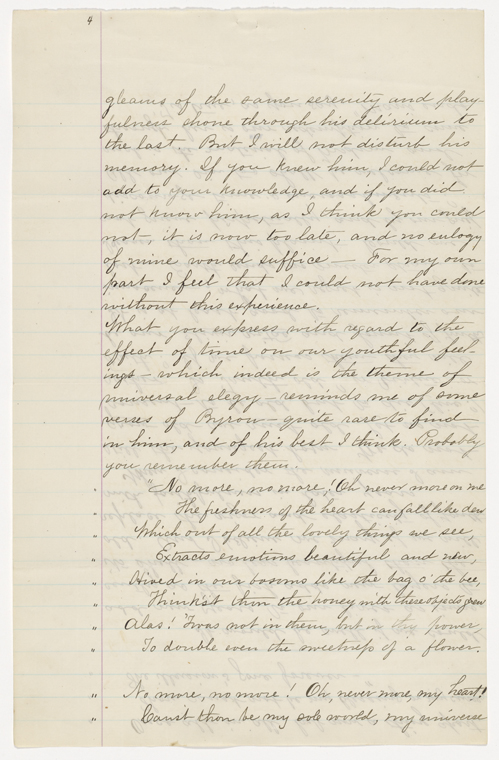 4
gleams of the same serenity and play-
fulness shone through his delirium to
the last. But I will not disturb his
memory. If you knew him, I could not
add to your knowledge, and if you did
not know him, as I think you could
not, it is now too late, and no eulogy
of mine would suffice — For my own
part I feel that I could not have done
without this experience.
What you express with regard to the
effect of time on our youthful feel-
ings — which indeed is the theme of
universal elegy — reminds me of some
verses of Byron — quite rare to find
in him, and of his best I think. Probably
you remember them.
"No more, no more! Oh never more on me
The freshness of the heart can fall like dew
" Which out of all the lovely things we see,
" Extracts emotions beautiful and new,
" Hived in our bosoms like the bag o' the bee,
" Think'st thou the honey with these objects grew
" Alas! 'Twas not in them, but in thy power,
" To double even the sweetness of a flower.
" No more, no more! Oh, never more, my heart!
" Canst thou be my sole world, my universe